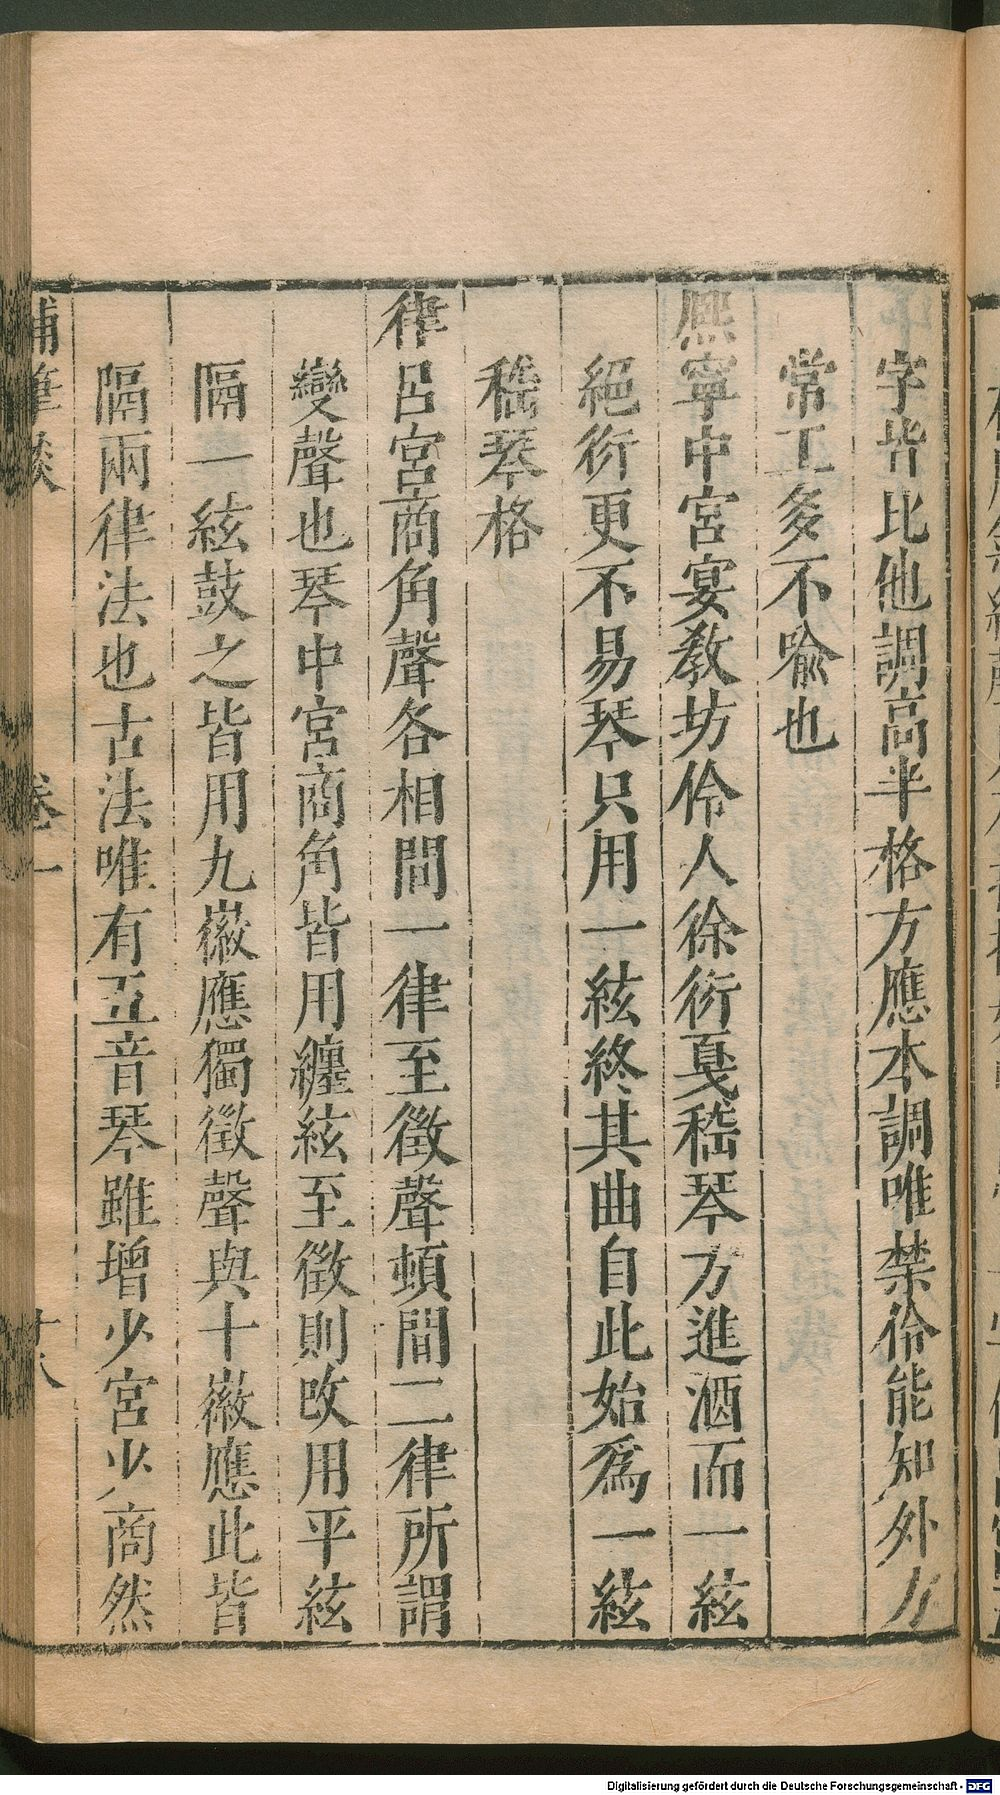 字皆比他調高半格方應本調唯禁伶能知外方
常工多不喻也
熈寧中宮宴教坊伶人徐衍戛嵇琴方進酒而一絃
絕衍更不易琴只用一絃終其曲自此始爲一絃
嵇琴格
律呂宮商角聲各相間一律至徵聲頓間二律所謂
變聲也琴中宮商角皆用纏絃至徵則改用平絃
隔一絃鼓之皆用九徽應獨徵聲與十徽應此皆
隔兩律法也古法唯有五音琴雖增少宮少商然
補筆談 卷一 十八
Digitalisierung gefördert durch die Deutsche Forschungsgemeinschaft - DFG